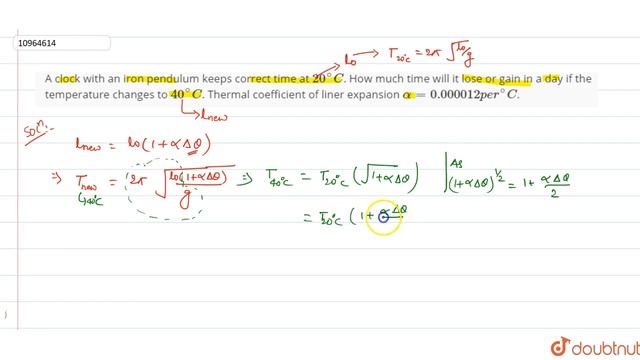 10964614
l₀ → T₂₀°C = 2π √l₀/g
A clock with an iron pendulum keeps correct time at 20°C. How much time will it lose or gain in a day if the
temperature changes to 40°C. Thermal coefficient of liner expansion α = 0.000012per°C.
lnew
Solⁿ:-
lnew = l₀(1+αΔθ)
⇒ Tnew = 2π √l₀(1+αΔθ)/g ⇒ T₄₀°C = T₂₀°C (√1+αΔθ) | As
(1+αΔθ)^1/2 = 1 + αΔθ/2
↳40°C
= T₂₀°C (1 + αΔθ
doubtnut